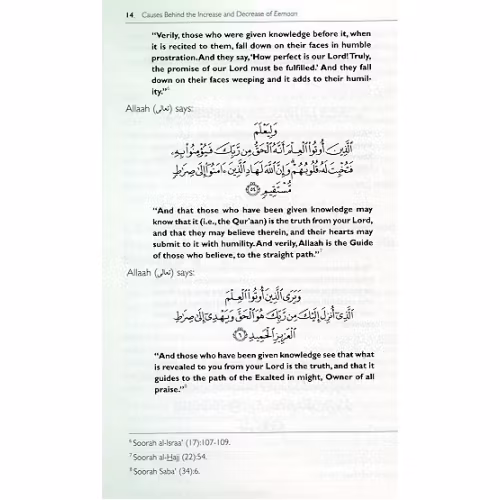 14   Causes Behind the Increase and Decrease of Eemaan
"Verily, those who were given knowledge before it, when
it is recited to them, fall down on their faces in humble
prostration. And they say, 'How perfect is our Lord! Truly,
the promise of our Lord must be fulfilled.' And they fall
down on their faces weeping and it adds to their humil-
ity."⁶
Allaah (تعالى) says:
وَلِيَعْلَمَ
الَّذِينَ أُوتُوا الْعِلْمَ أَنَّهُ الْحَقُّ مِن رَّبِّكَ فَيُؤْمِنُوا بِهِ
فَتُخْبِتَ لَهُ قُلُوبُهُمْ وَإِنَّ اللَّهَ لَهَادِ الَّذِينَ ءَامَنُوا إِلَى صِرَاطٍ
مُّسْتَقِيمٍ ﴿٥٤﴾
"And that those who have been given knowledge may
know that it (i.e., the Qur'aan) is the truth from your Lord,
and that they may believe therein, and their hearts may
submit to it with humility. And verily, Allaah is the Guide
of those who believe, to the straight path."⁷
Allaah (تعالى) says:
وَيَرَى الَّذِينَ أُوتُوا الْعِلْمَ
الَّذِي أُنزِلَ إِلَيْكَ مِن رَّبِّكَ هُوَ الْحَقَّ وَيَهْدِي إِلَى صِرَاطِ
الْعَزِيزِ الْحَمِيدِ ﴿٦﴾
"And those who have been given knowledge see that what
is revealed to you from your Lord is the truth, and that it
guides to the path of the Exalted in might, Owner of all
praise."⁸
⁶ Soorah al-Israa' (17):107-109.
⁷ Soorah al-Hajj (22):54.
⁸ Soorah Saba' (34):6.